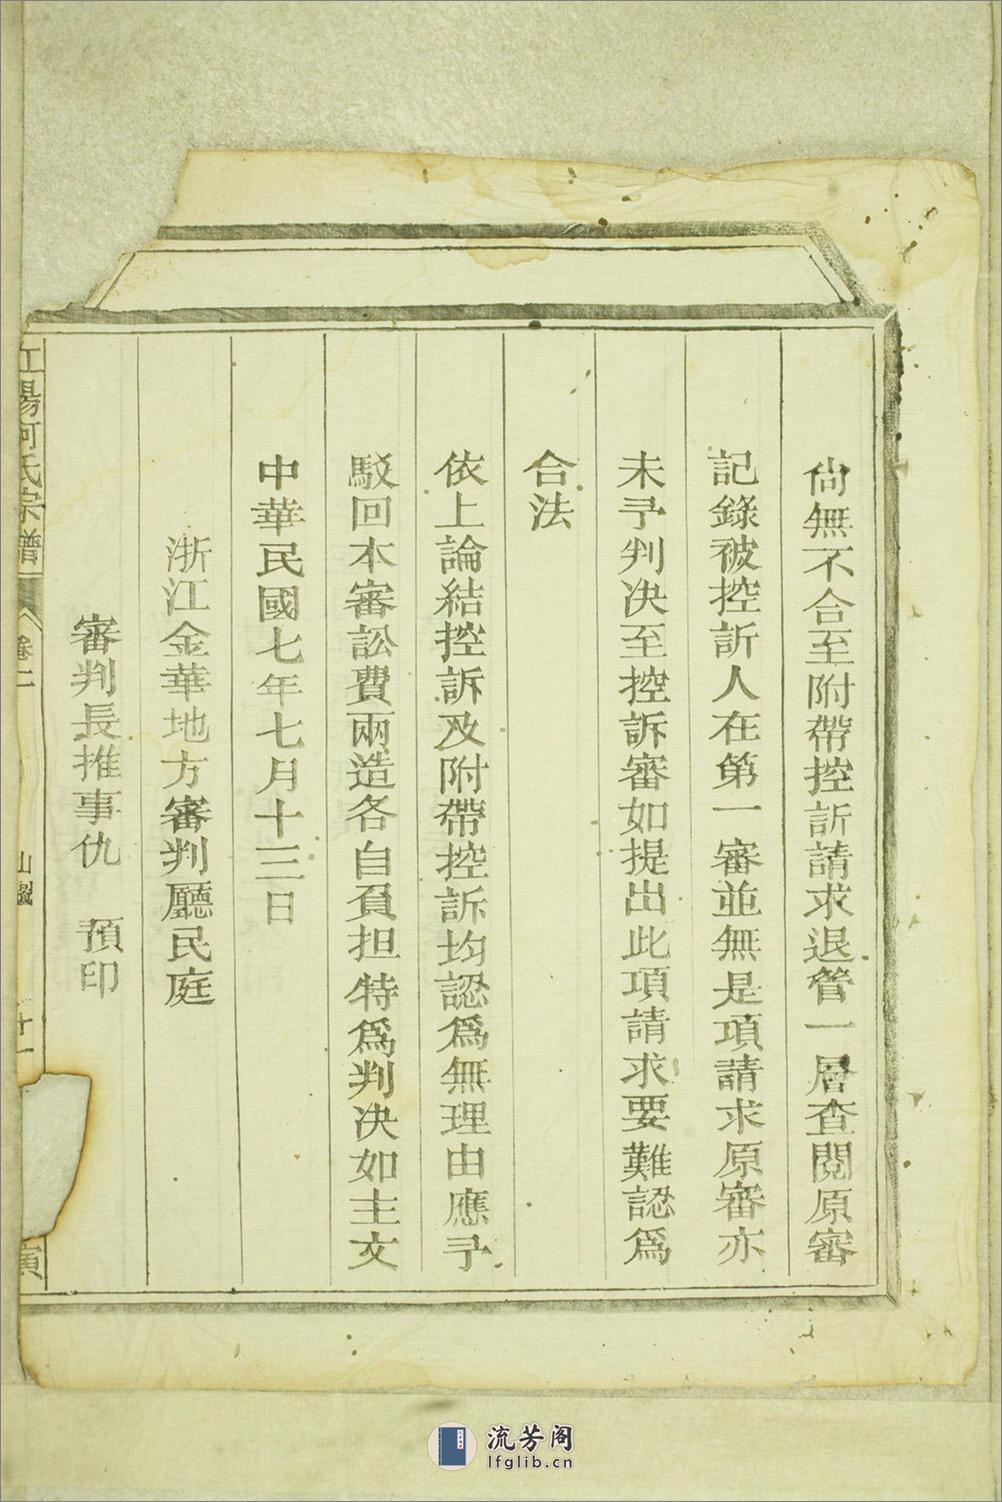 尙無不合至附帶控訴請求退管一層查閱原審
記錄被控訴人在第一審並無是項請求原審亦
未予判决至控訴審如提出此項請求要難認爲
合法
依上論結控訴及附帶控訴均認爲無理由應予
駁回本審訟費兩造各自負担特爲判决如主文
中華民國七年七月十三日
浙江金華地方審判廳民庭
審判長推事仇 預印
江陽何氏宗譜
卷二
十一
流芳阁
lfglib.cn